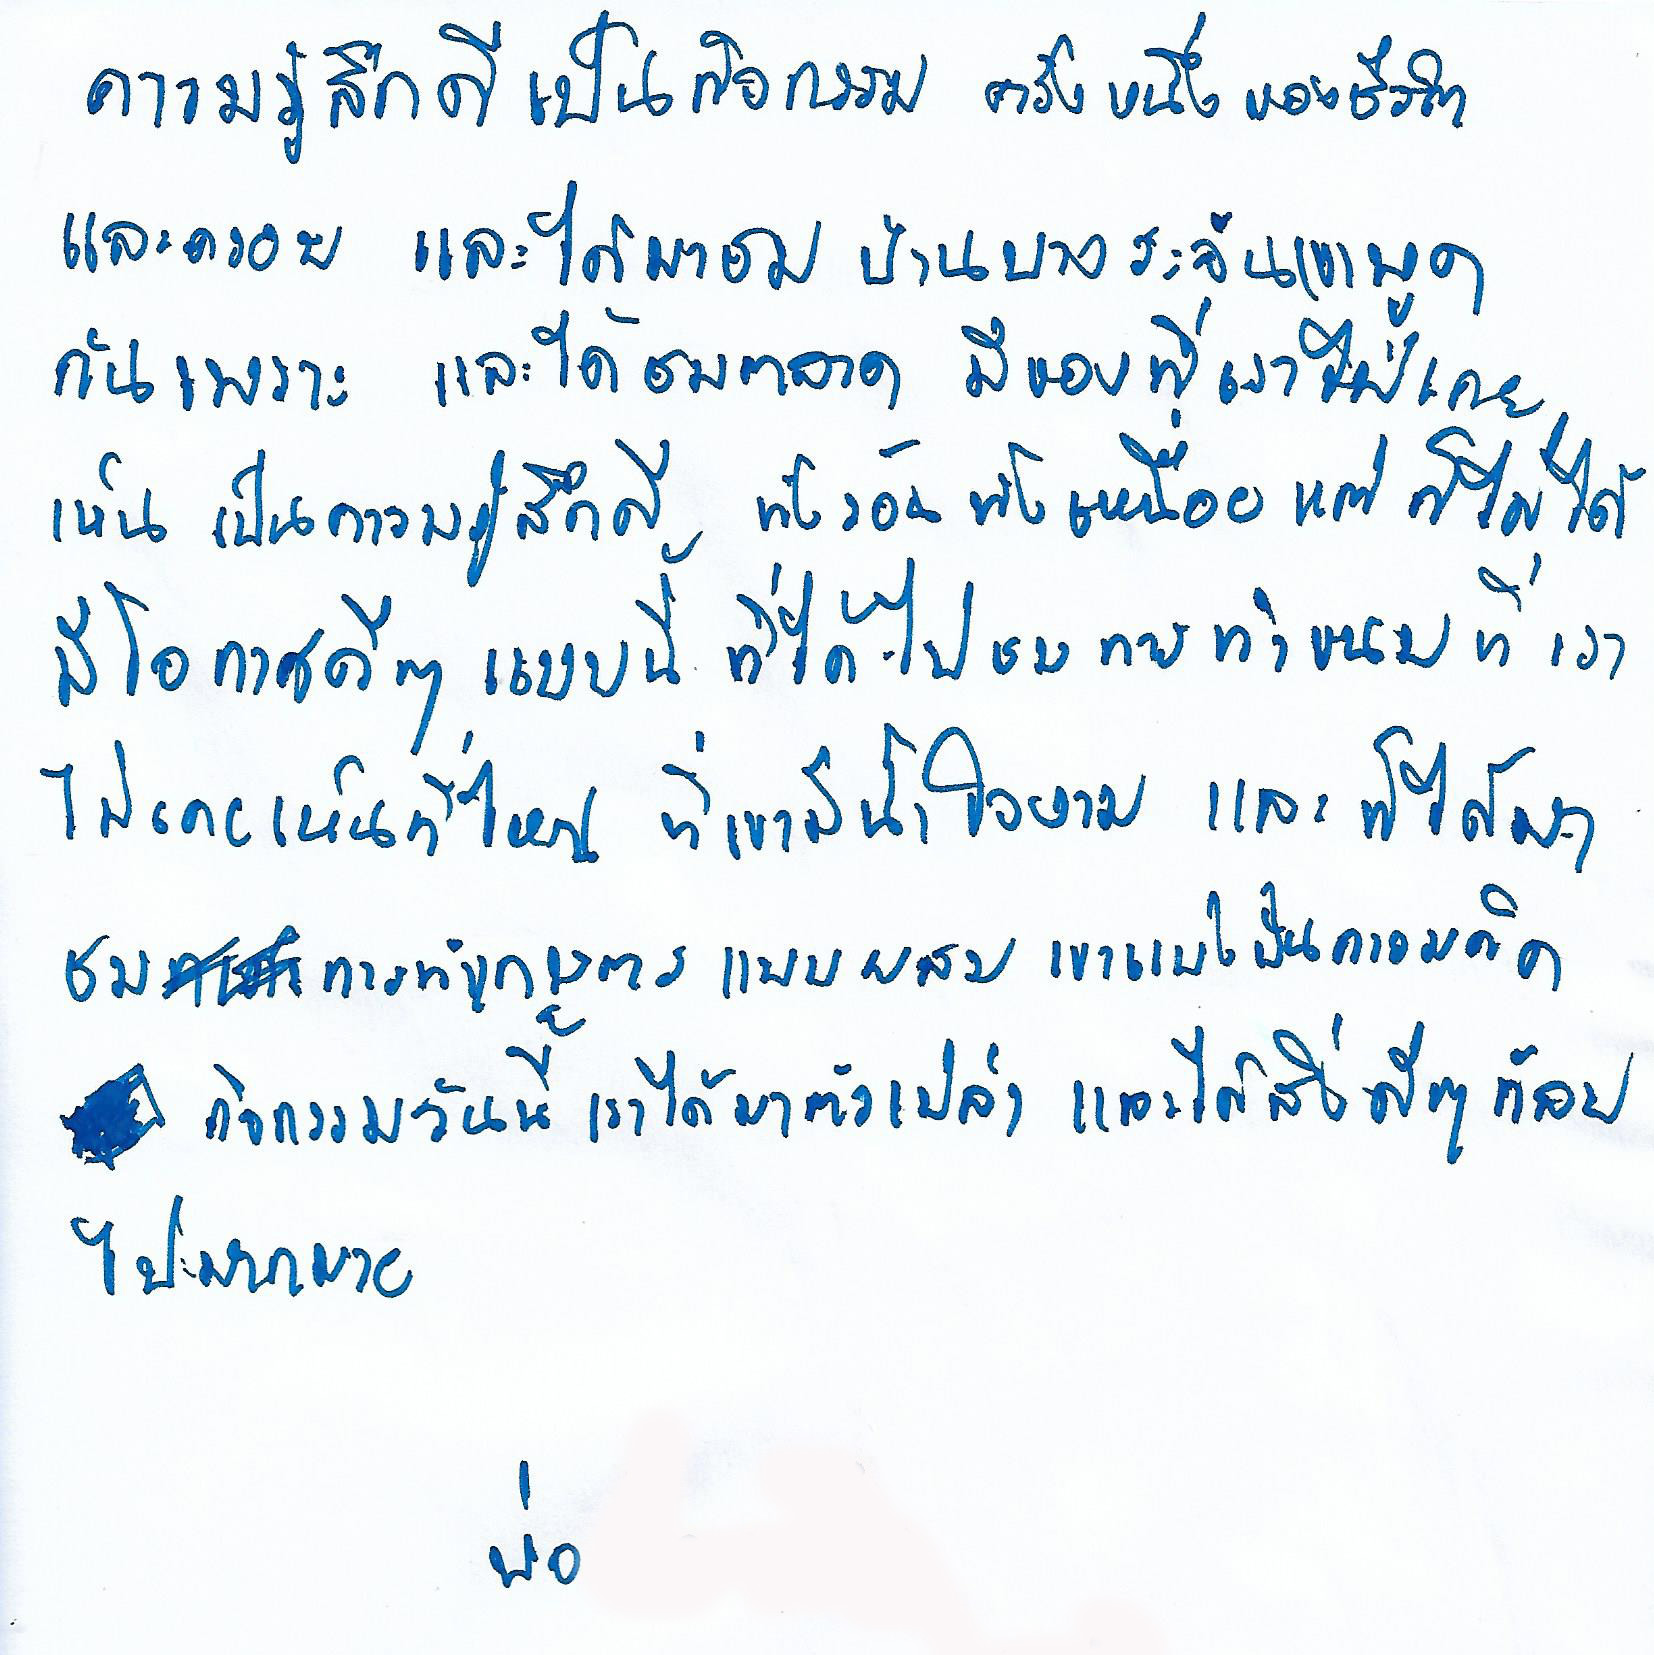 ความรู้สึกดีเป็นกิจกรรม ครั้งหนึ่งของชีวิต
และครอบ และได้มาชม บ้านบางระจันเขาพูด
กันเพราะ และได้ชมตลาด มีของที่เราไม่เคย
เห็น เป็นความรู้สึกดี ทั้งร้อน ทั้งเหนื่อย แต่ก็ไม่ได้
มีโอกาศดีๆ แบบนี้ ที่ได้ไปชม การทำขนม ที่เรา
ไม่เคยเห็นที่ไหน ที่เขามีน้ำใจงาม และก็ได้มา
ชม การทำเกษตร แบบผสม เขาแบ่งปันความคิด
กิจกรรมวันนี้ เราได้มาตัวเปล่า และได้สิ่งดีๆ กลับ
ไปมากมาย
พ่อ